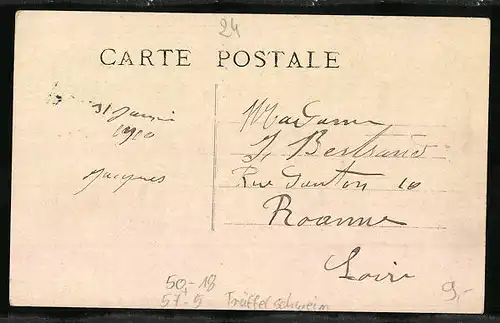 24
CARTE POSTALE
31 Janvier
1910
Jacques
Madame
J. Bertrand
Rue Danton 10
Roanne
Loire
50,-18
57-5 Trüffelschwein
9,-